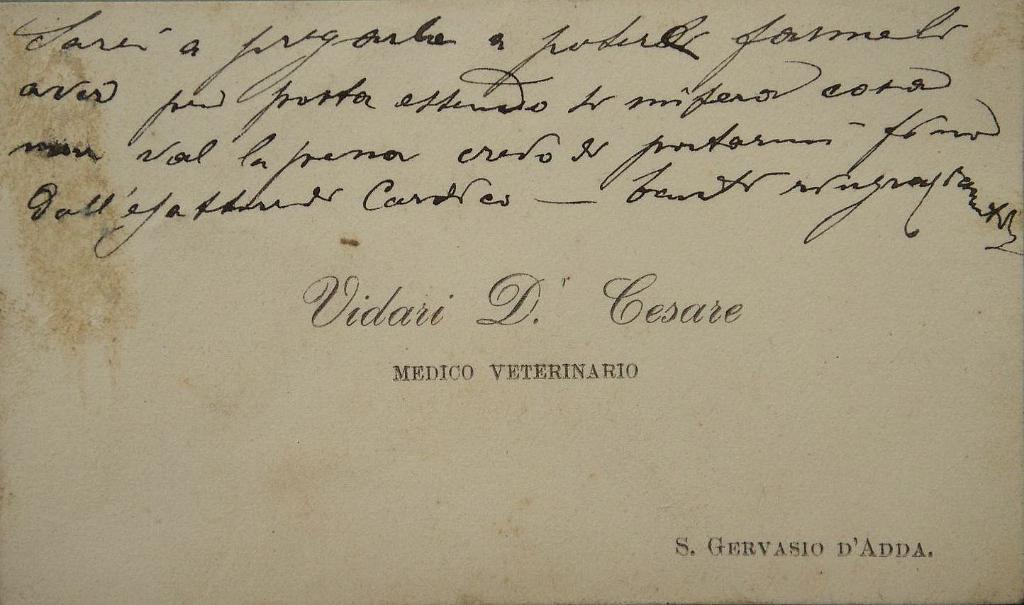 Sarei a pregarla a poterli farmeli
aver per posta essendo sì misera cosa
non val la pena credo di portarmi fino
dall'esattore di Cardico — tanti ringraziamenti
Vidari D.r Cesare
MEDICO VETERINARIO
S. GERVASIO D'ADDA.